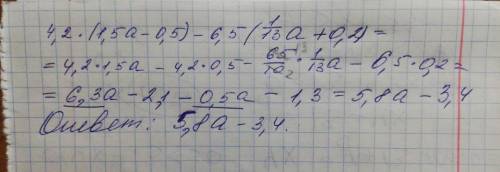 4,2 · (1,5a − 0,5) − 6,5 (1/13 a + 0,2) =
= 4,2 · 1,5a − 4,2 · 0,5 − 65/10 · 1/13 a − 6,5 · 0,2 =
= 6,3a − 2,1 − 0,5a − 1,3 = 5,8a − 3,4
Ответ: 5,8a − 3,4.